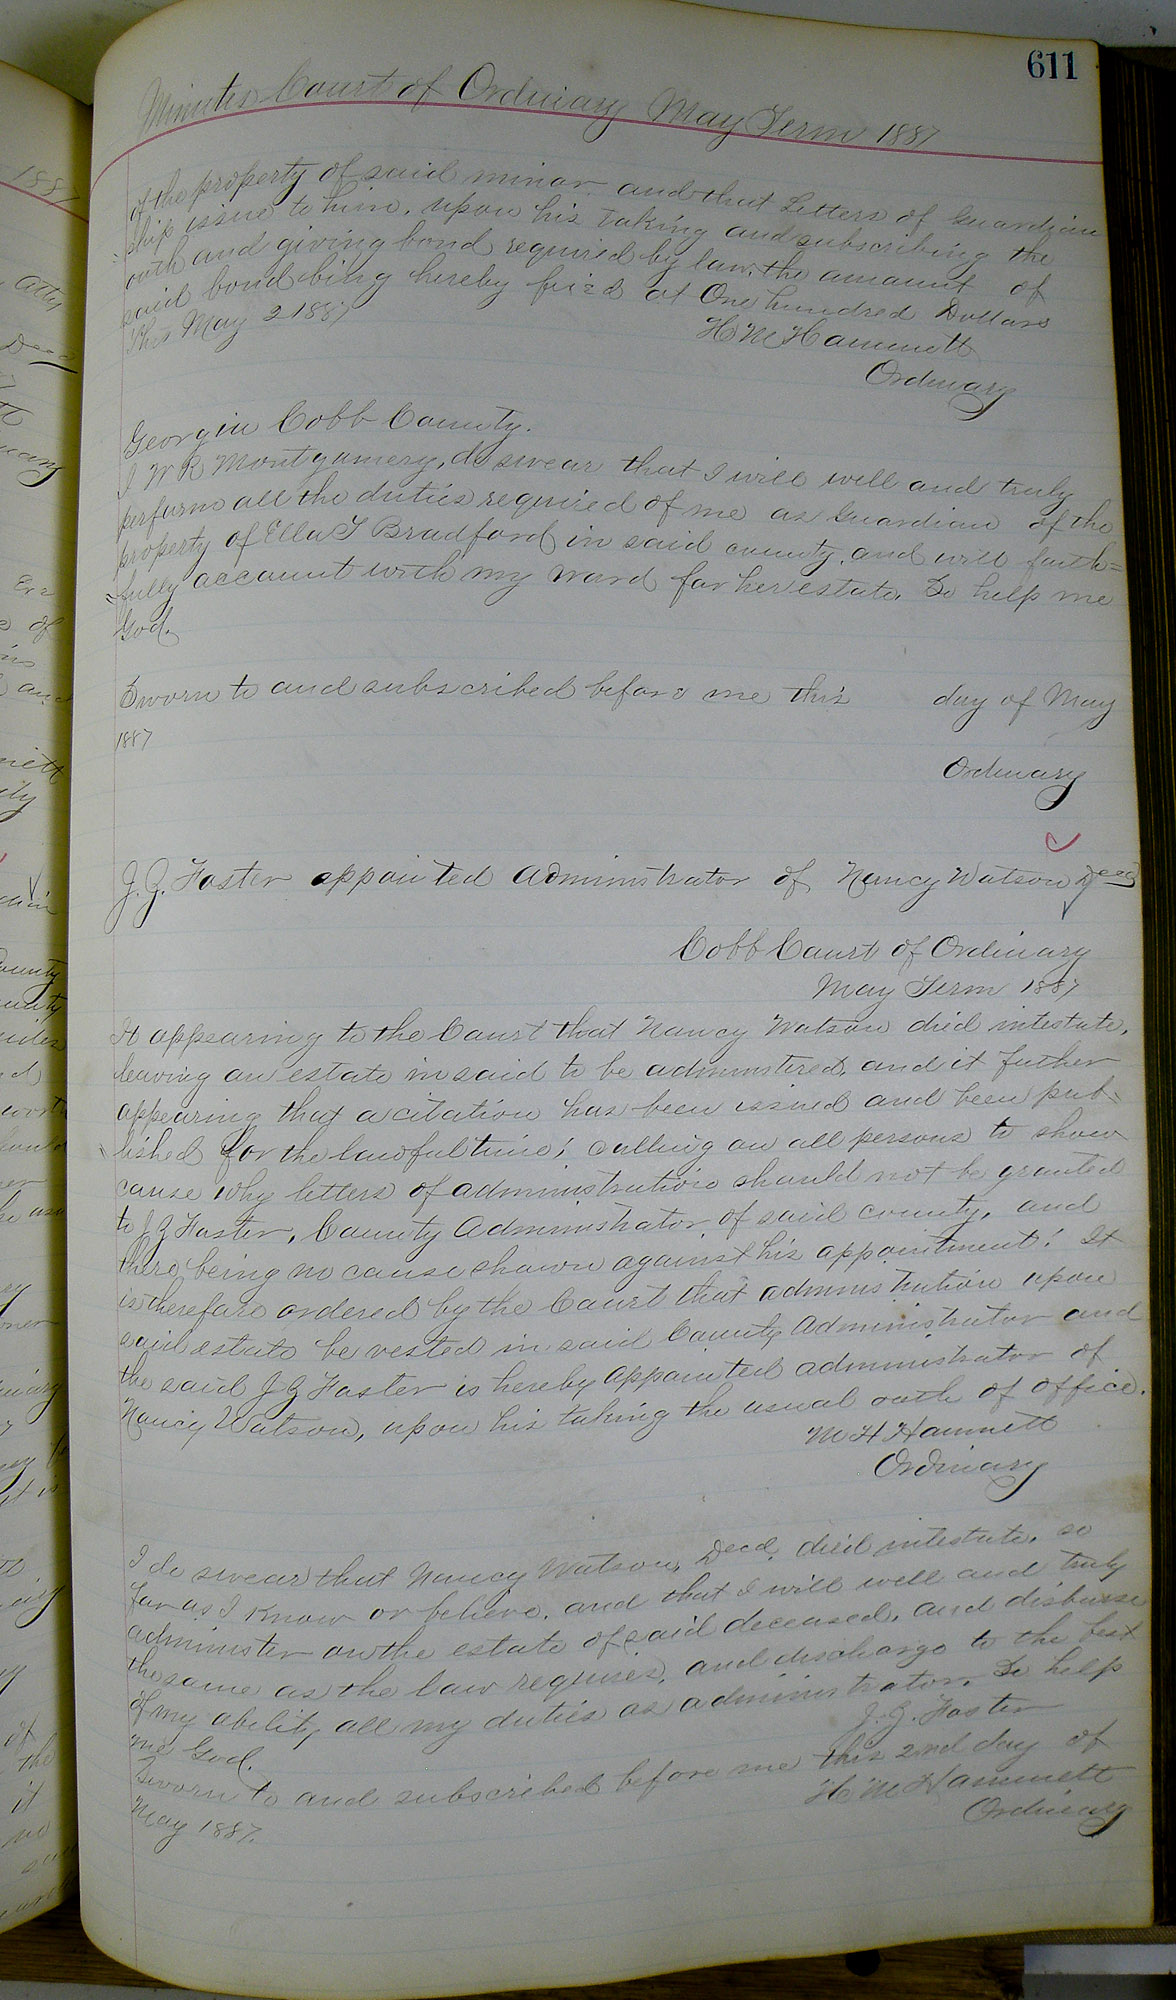 611
Minutes Court of Ordinary May Term 1887
of the property of said minor and that Letters of Guardian
ship issue to him, upon his taking and subscribing the
oath and giving bond required by law, the amount of
said bond being hereby fixed at One hundred Dollars
This May 2 1887
H M Hammett
Ordinary
Georgia Cobb County.
I W R Montgomery, do swear that I will well and truly
perform all the duties required of me as Guardian of the
property of Ella T Bradford in said county, and will faith=
=fully account with my ward for her estate. So help me
God.
Sworn to and subscribed before me this day of May
1887
Ordinary
J. G. Foster appointed Administrator of Nancy Watson Decd
Cobb Court of Ordinary
May Term 1887
It appearing to the Court that Nancy Watson died intestate,
leaving an estate in said to be administered, and it further
appearing that a citation has been issued and been pub-
lished for the lawful time, calling on all persons to show
cause why letters of administration should not be granted
to J G Foster, County Administrator of said county, and
there being no cause shown against his appointment: It
is therefore ordered by the Court that administration upon
said estate be vested in said County Administrator and
the said J G Foster is hereby appointed administrator of
Nancy Watson, upon his taking the usual oath of office.
M H Hammett
Ordinary
I do swear that Nancy Watson, Decd, died intestate, so
far as I know or believe, and that I will well and truly
administer on the estate of said deceased, and disburse
the same as the law requires, and discharge to the best
of my ability all my duties as administrator. So help
me God.
J. G. Foster
Sworn to and subscribed before me this 2nd day of
May 1887.
H M Hammett
Ordinary